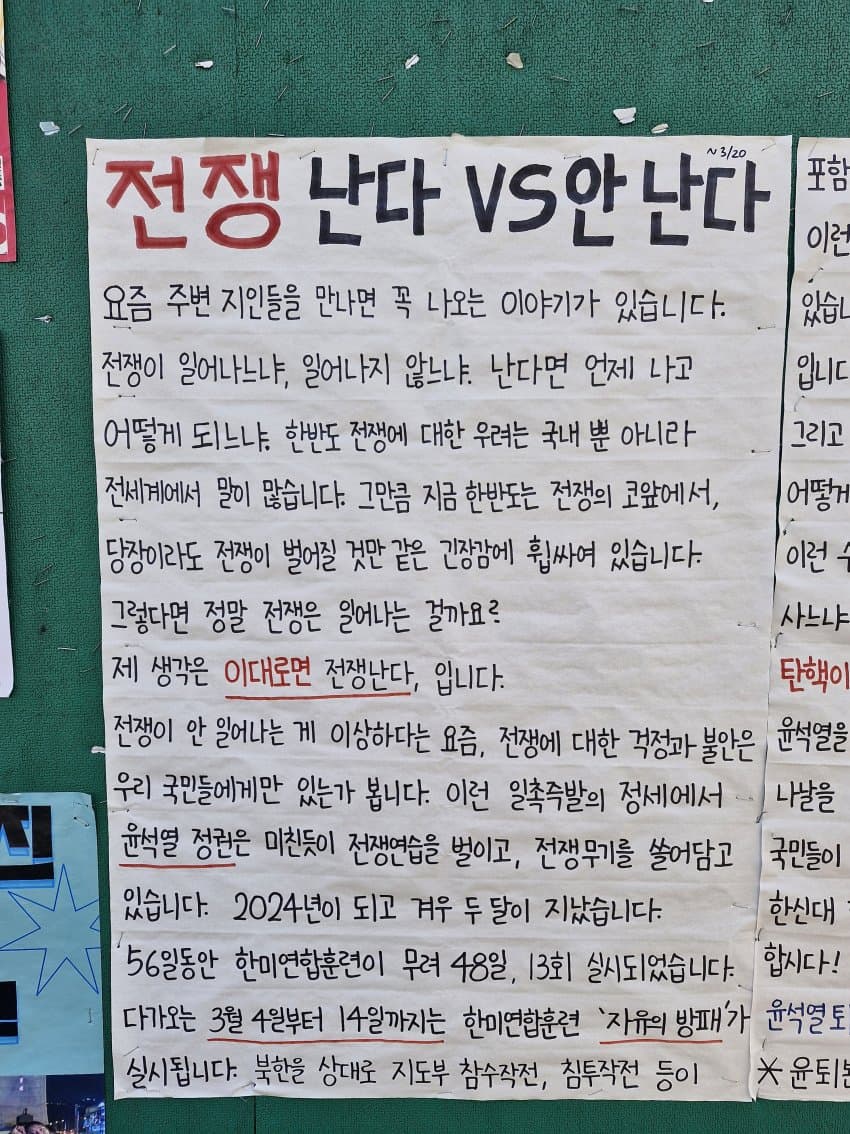 전쟁 난다 VS 안 난다
~3/20
요즘 주변 지인들을 만나면 꼭 나오는 이야기가 있습니다.
전쟁이 일어나느냐, 일어나지 않느냐. 난다면 언제 나고
어떻게 되느냐. 한반도 전쟁에 대한 우려는 국내 뿐 아니라
전세계에서 말이 많습니다. 그만큼 지금 한반도는 전쟁의 코앞에서,
당장이라도 전쟁이 벌어질 것만 같은 긴장감에 휩싸여 있습니다.
그렇다면 정말 전쟁은 일어나는 걸까요?
제 생각은 이대로면 전쟁난다, 입니다.
전쟁이 안 일어나는 게 이상하다는 요즘, 전쟁에 대한 걱정과 불안은
우리 국민들에게만 있는가 봅니다. 이런 일촉즉발의 정세에서
윤석열 정권은 미친듯이 전쟁연습을 벌이고, 전쟁무기를 쏟어담고
있습니다. 2024년이 되고 겨우 두 달이 지났습니다.
56일동안 한미연합훈련이 무려 48일, 13회 실시되었습니다.
다가오는 3월 4일부터 14일까지는 한미연합훈련 '자유의 방패'가
실시됩니다. 북한을 상대로 지도부 참수작전, 침투작전 등이
포함
이런
있습니
입니다
그리고
어떻게
이런
사느냐
탄핵이
윤석열을
나날을
국민들이
한신대
합시다!
윤석열 퇴
* 윤퇴본